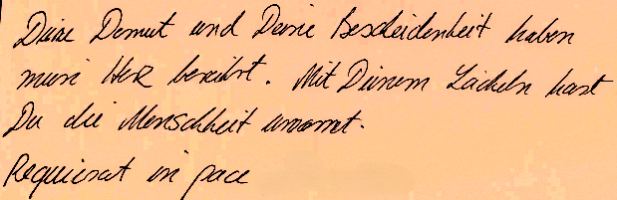 Deine Demut und Deine Bescheidenheit haben
mein Herz berührt. Mit Deinem Lächeln hast
Du die Menschheit umarmt.
Requiescat in pace